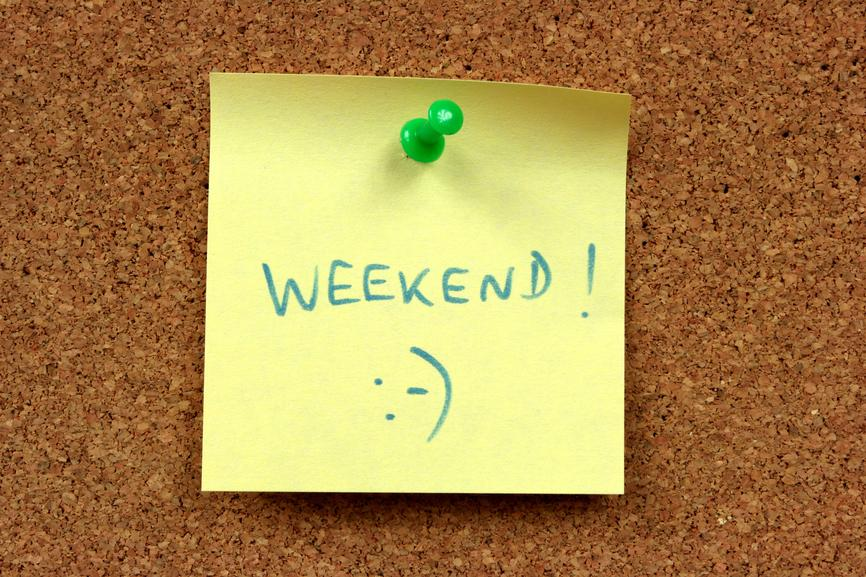 WEEKEND !
:-)